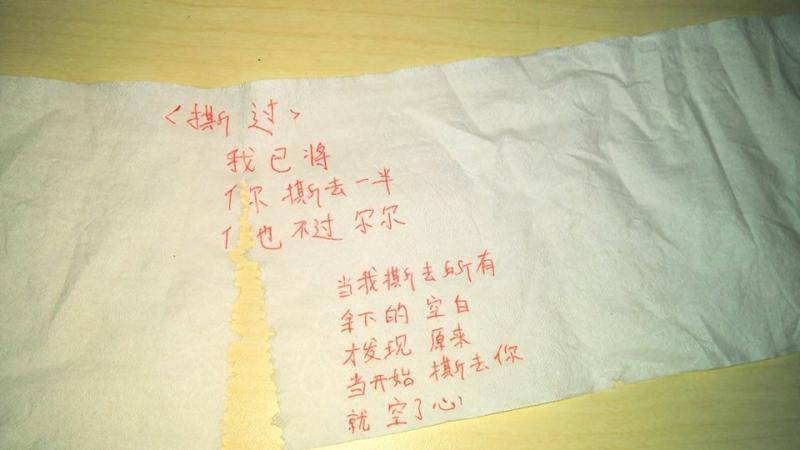 <撕过>
我已将
你撕去一半
亻也不过尔尔
当我撕去所有
余下的空白
才发现原来
当开始撕去你
就空了心